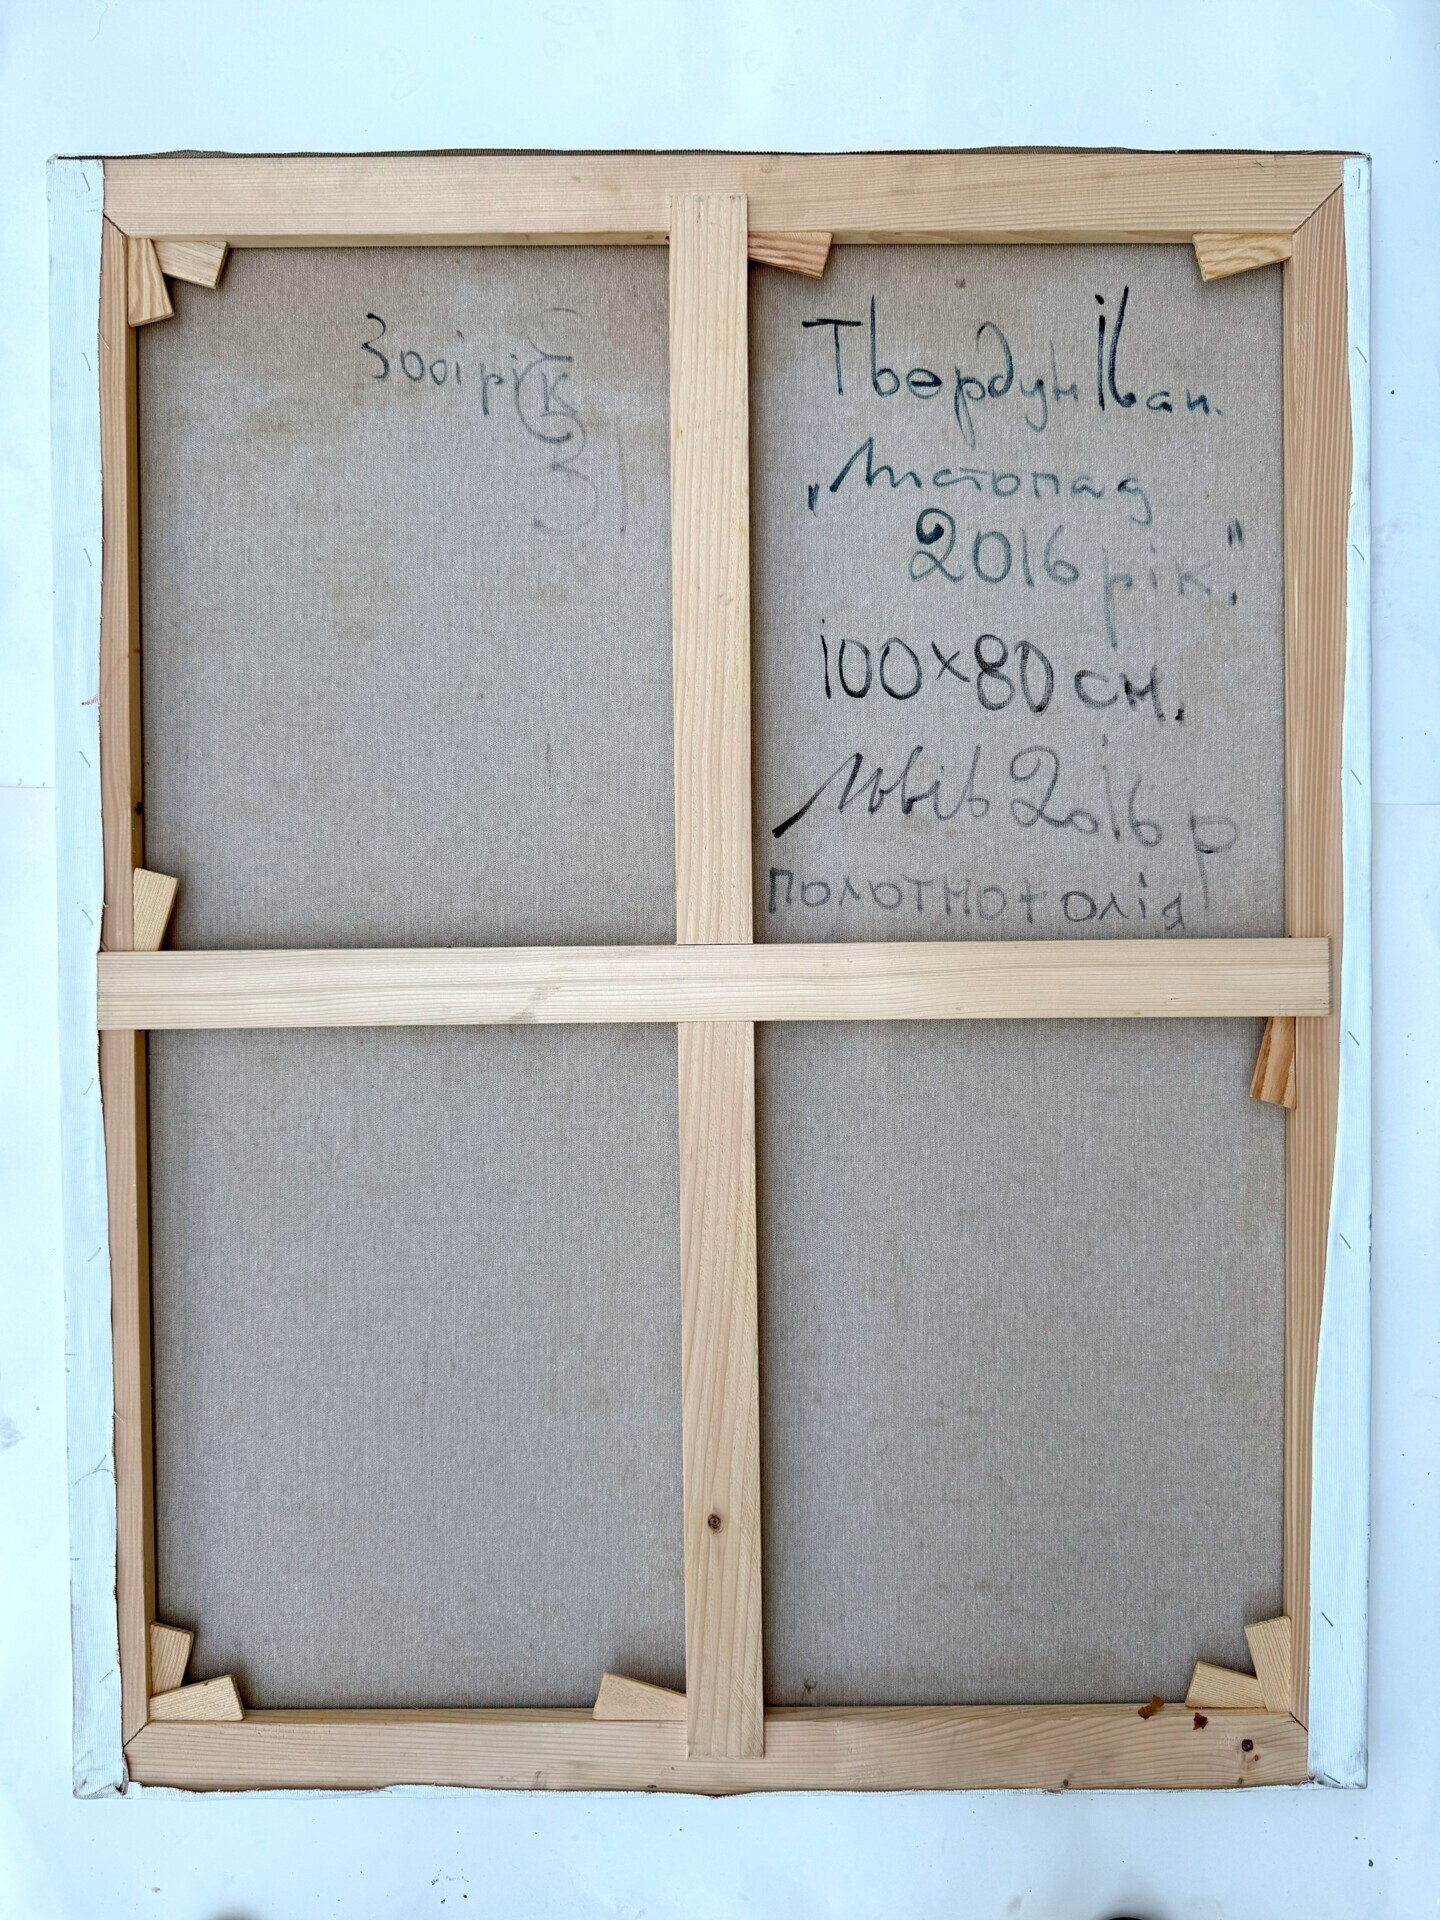 Твердун Іван.
„Листопад
2016 рік."
100×80 см.
Львів 2016 р
полотно + олія